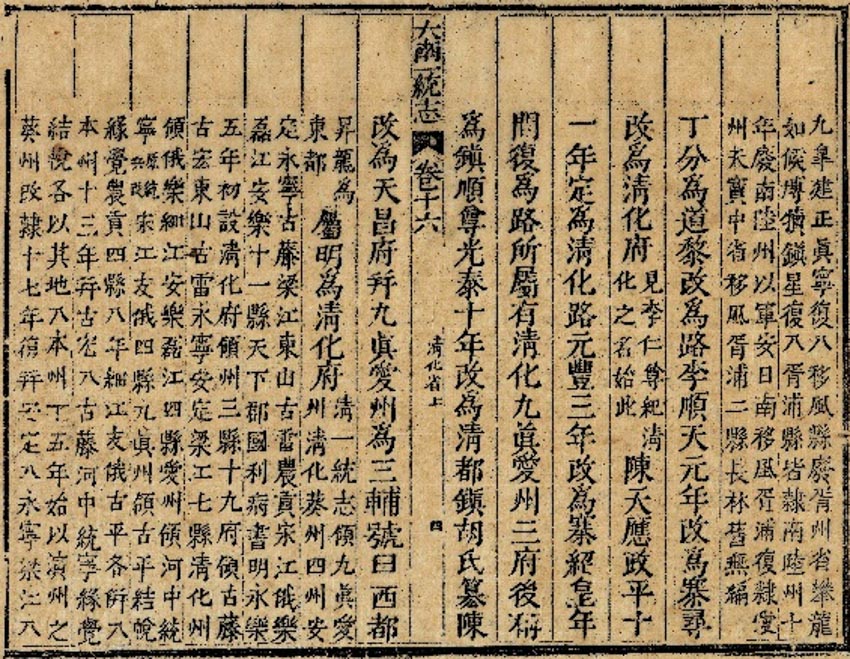 九皐建正眞寧復入移風縣廢胥州省攀龍
如侯博犢鎮星復入胥浦縣皆隸南陸州十
年慶南陸州以軍安日南移風胥浦復隸愛
州天寶中省移風胥浦二縣長林舊無編
丁分為道黎改為路李順天元年改為寨尋
改為淸化府見李仁尊紀淸化之名始此陳天應政平十
一年定為淸化路元豐三年改為寨紹皇年
間復為路所屬有淸化九眞愛州三府後稱
為鎮順尊光泰十年改為淸都鎮胡氏簒陳
大南一統志 卷十六 淸化省上 四
改為天昌府幷九眞愛州為三輔號曰西都
昇龍為東都屬明為淸化府淸一統志領九眞愛州淸化葵州四州安
定永寧古藤梁江東山古雷農貢宋江俄樂
磊江安樂十一縣天下郡國利病書明永樂
五年初設淸化府領州三縣十九府領古藤
古宏東山古雷永寧安定梁江七縣淸化州
領俄樂細江安樂磊江四縣愛州領河中統
寧宋江支俄四縣九眞州領古平結帨
緣覺農貢四縣八年細江支俄古平各倂入
本州十三年幷古宏入古藤河中統寧緣覺
結帨各以其地入本州十五年始以演州之
葵州改隸十七年復幷安定入永寧梁江入